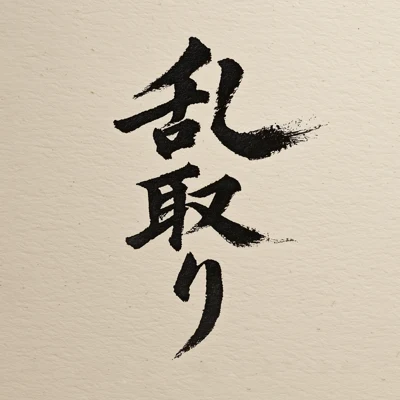 乱取り